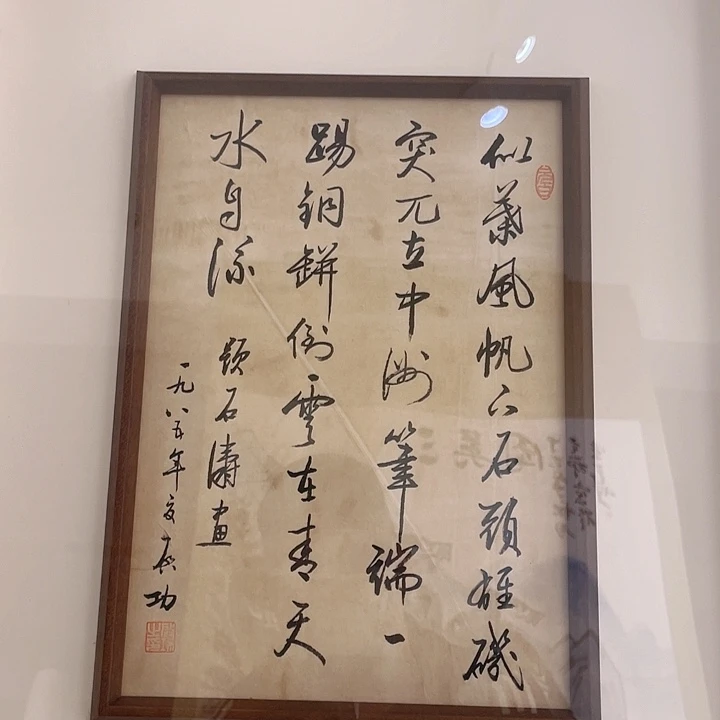 似葉風帆下石頭雄磯
突兀立中洲筆端一
踢銅缾倒雲在青天
水自流 題石濤畫
一九八五年夏啟功